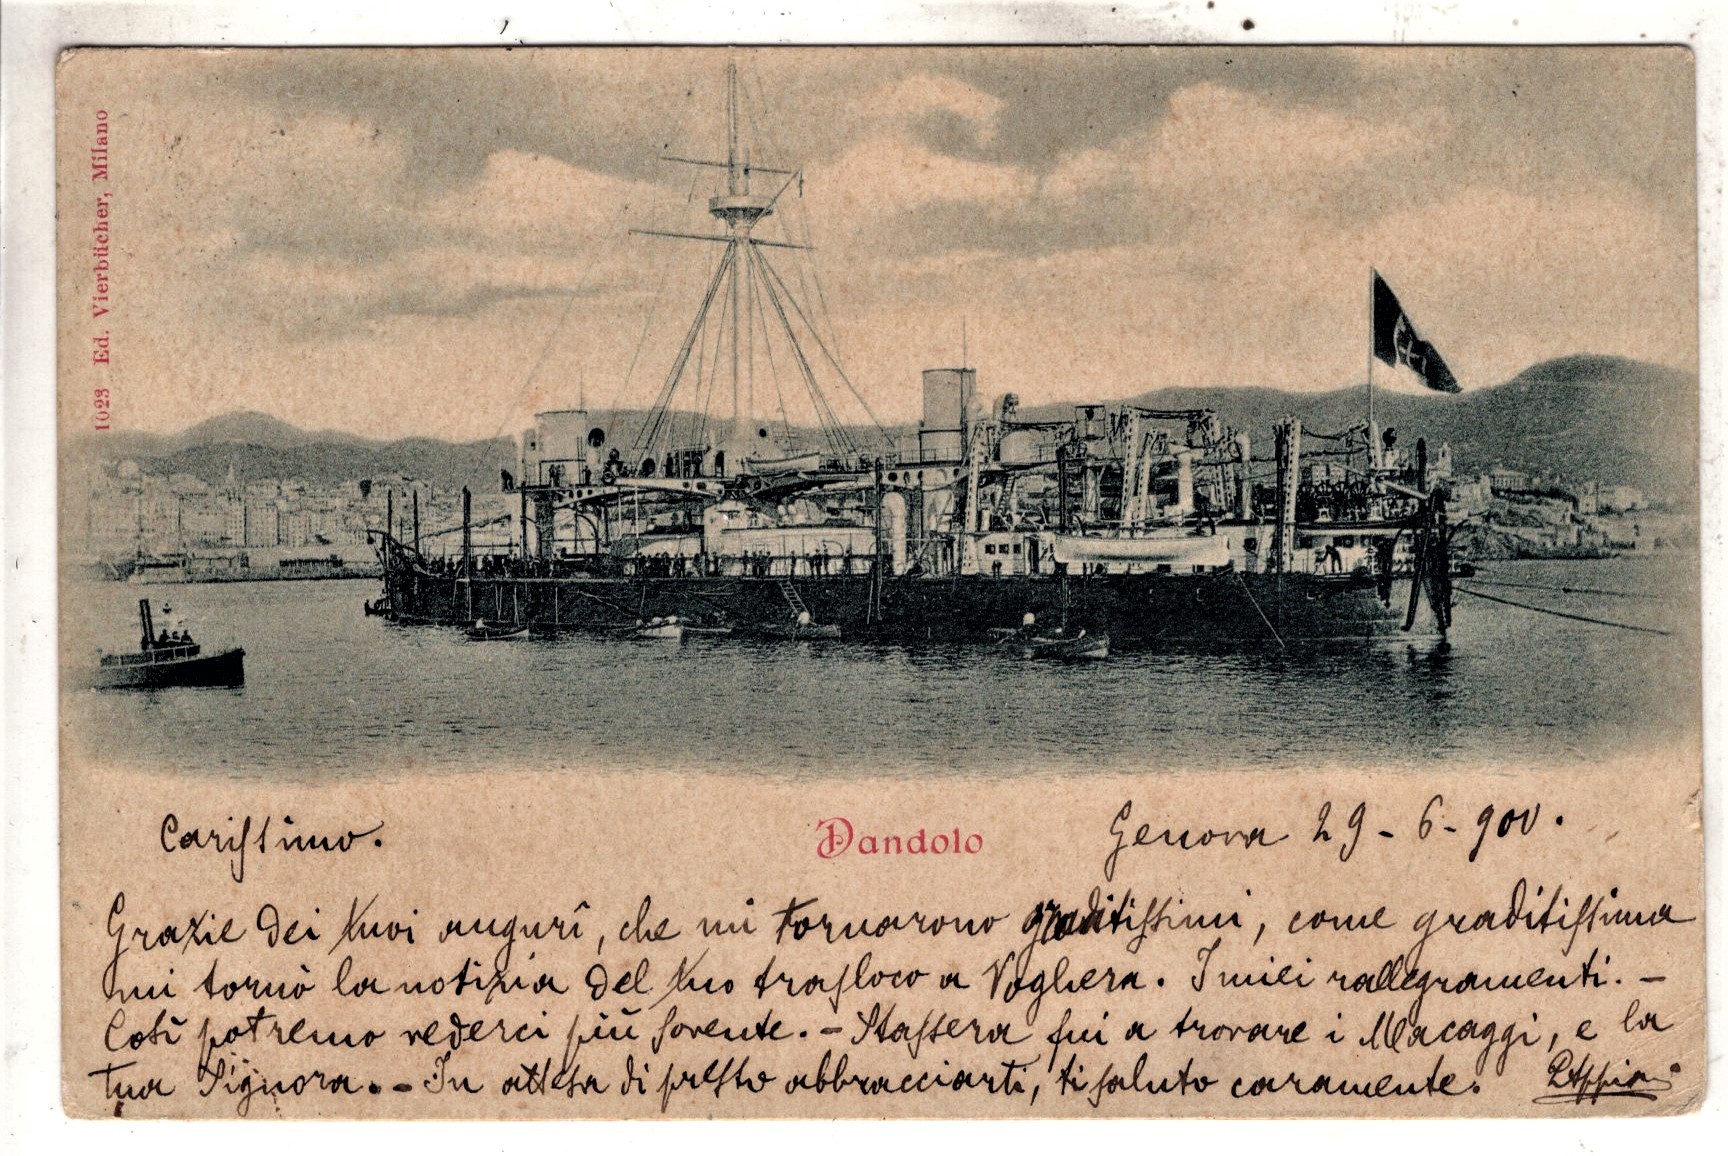 1023 Ed. Vierbücher, Milano
Carissimo.
Dandolo
Genova 29-6-900.
Grazie dei tuoi augurî, che mi tornarono graditissimi, come graditissima
mi tornò la notizia del tuo trasloco a Voghera. I miei rallegramenti. -
Così potremo vederci più sovente. - Stassera fui a trovare i Macaggi, e la
tua Signora. - In attesa di presto abbracciarti, ti saluto caramente.